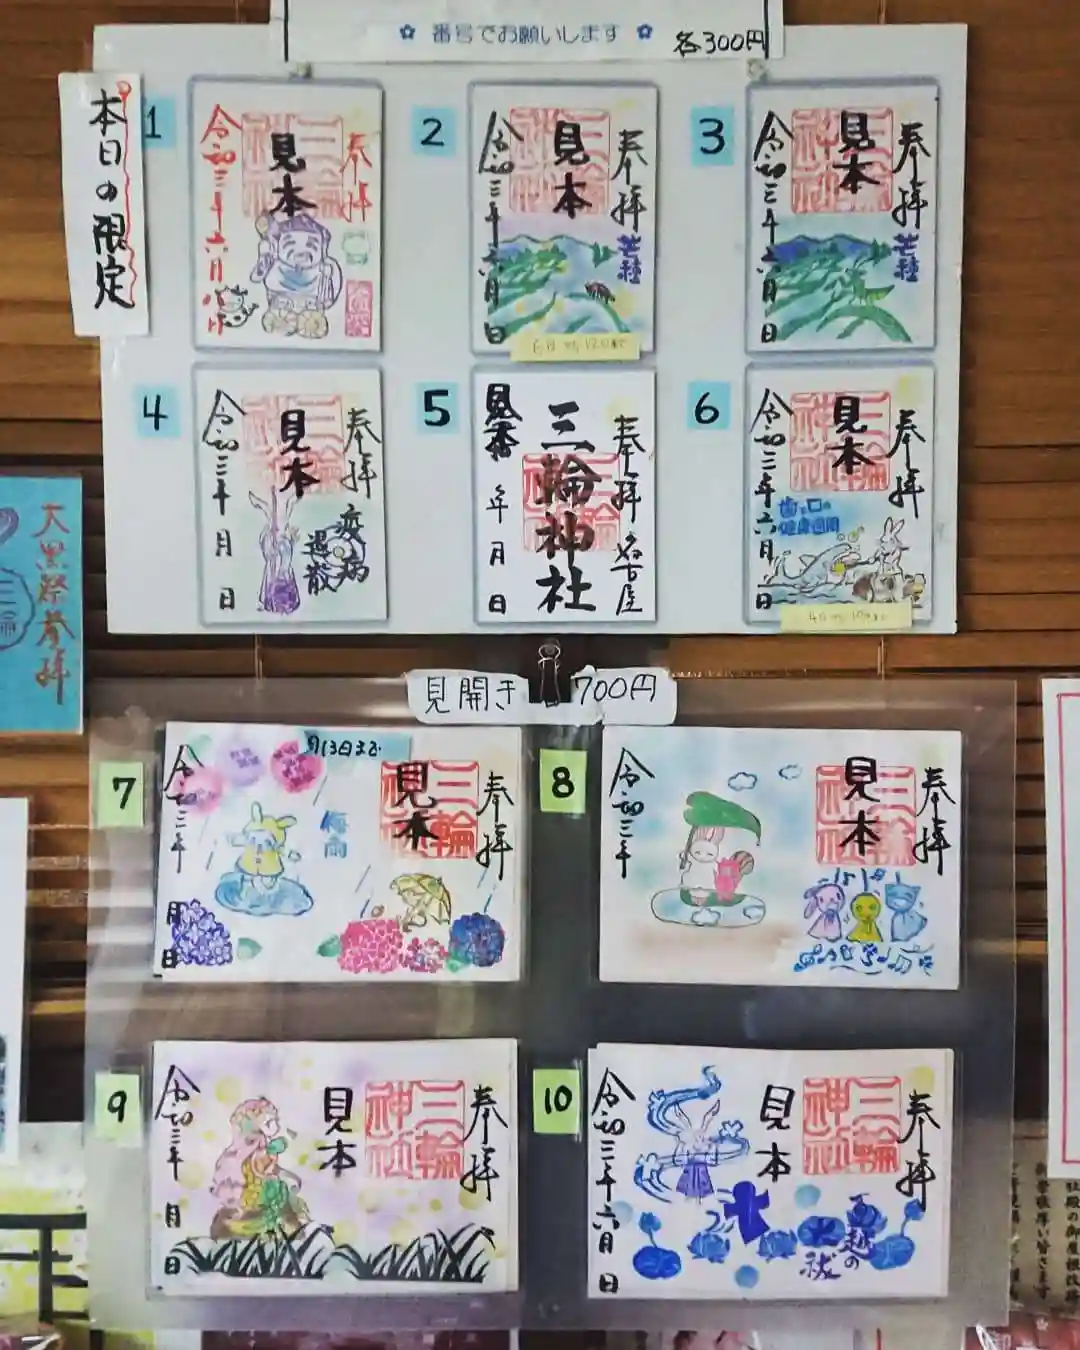 番号でお願いします
各300円
本日の限定
1
奉拝
見本
三輪神社
令和三年六月八日
2
奉拝
芒種
見本
三輪神社
令和三年六月 日
3
奉拝
芒種
見本
三輪神社
令和三年六月 日
4
奉拝
疫病
退散
見本
三輪神社
令和三年 月 日
5
奉拝 名古屋
三輪神社
見本
年 月 日
6
奉拝
見本
三輪神社
歯と口の
健康週間
令和三年六月 日
見開き 700円
7
月13日まで
奉拝
見本
三輪神社
梅雨
令和三年 月 日
8
奉拝
見本
三輪神社
令和三年
9
奉拝
三輪神社
見本
令和三年 月 日
10
奉拝
三輪神社
見本
夏越の
大祓
令和三年六月 日
大黒祭奉拝